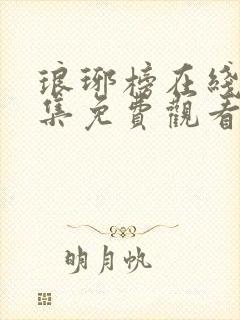 琅琊榜在綫
集免費觀看
明月帆